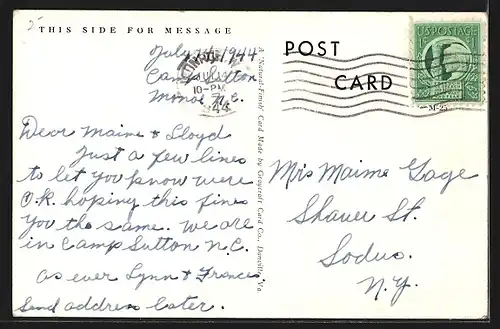 THIS SIDE FOR MESSAGE
July 14, 1944
Camp Sutton
Monroe N.C.
Dear Maime & Lloyd
Just a few lines
to let you know were
O.K. hoping this fines
you the same. We are
in Camp Sutton N.C.
as ever Lynn & Frances
Send address later.
A "Natural-Finish" Card Made by Graycraft Card Co., Danville, Va.
POST
CARD
U.S. POSTAGE
10-PM
44
M-25
Mrs Maime Gage
Shaver St.
Sodus
N.Y.